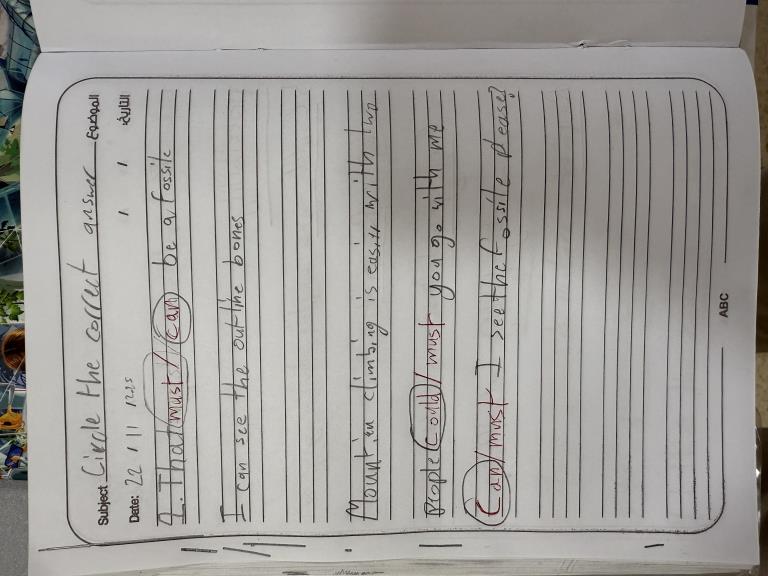 Subject Circle the correct answer الموضوع
Date: 22 / 11 / / التاريخ:
1. That must / can be a fossile
I can see the outline bones
climbing is with two
People Could / must you go with me
Can / must I see the fossile please?
ABC